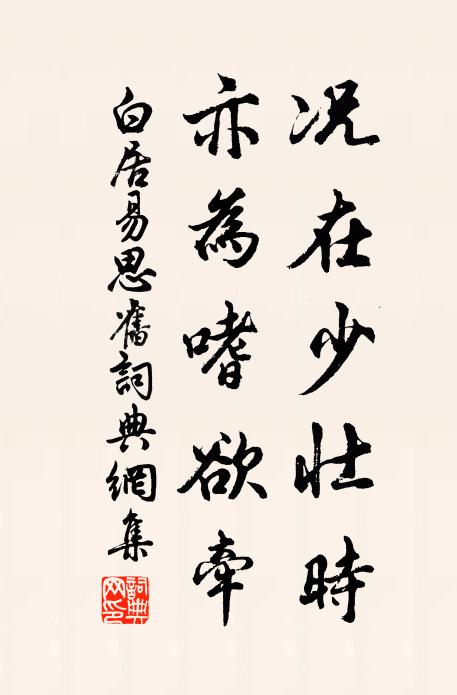 况在少壮時
亦為嗜欲牽
白居易思舊詞典網集
詞典網印